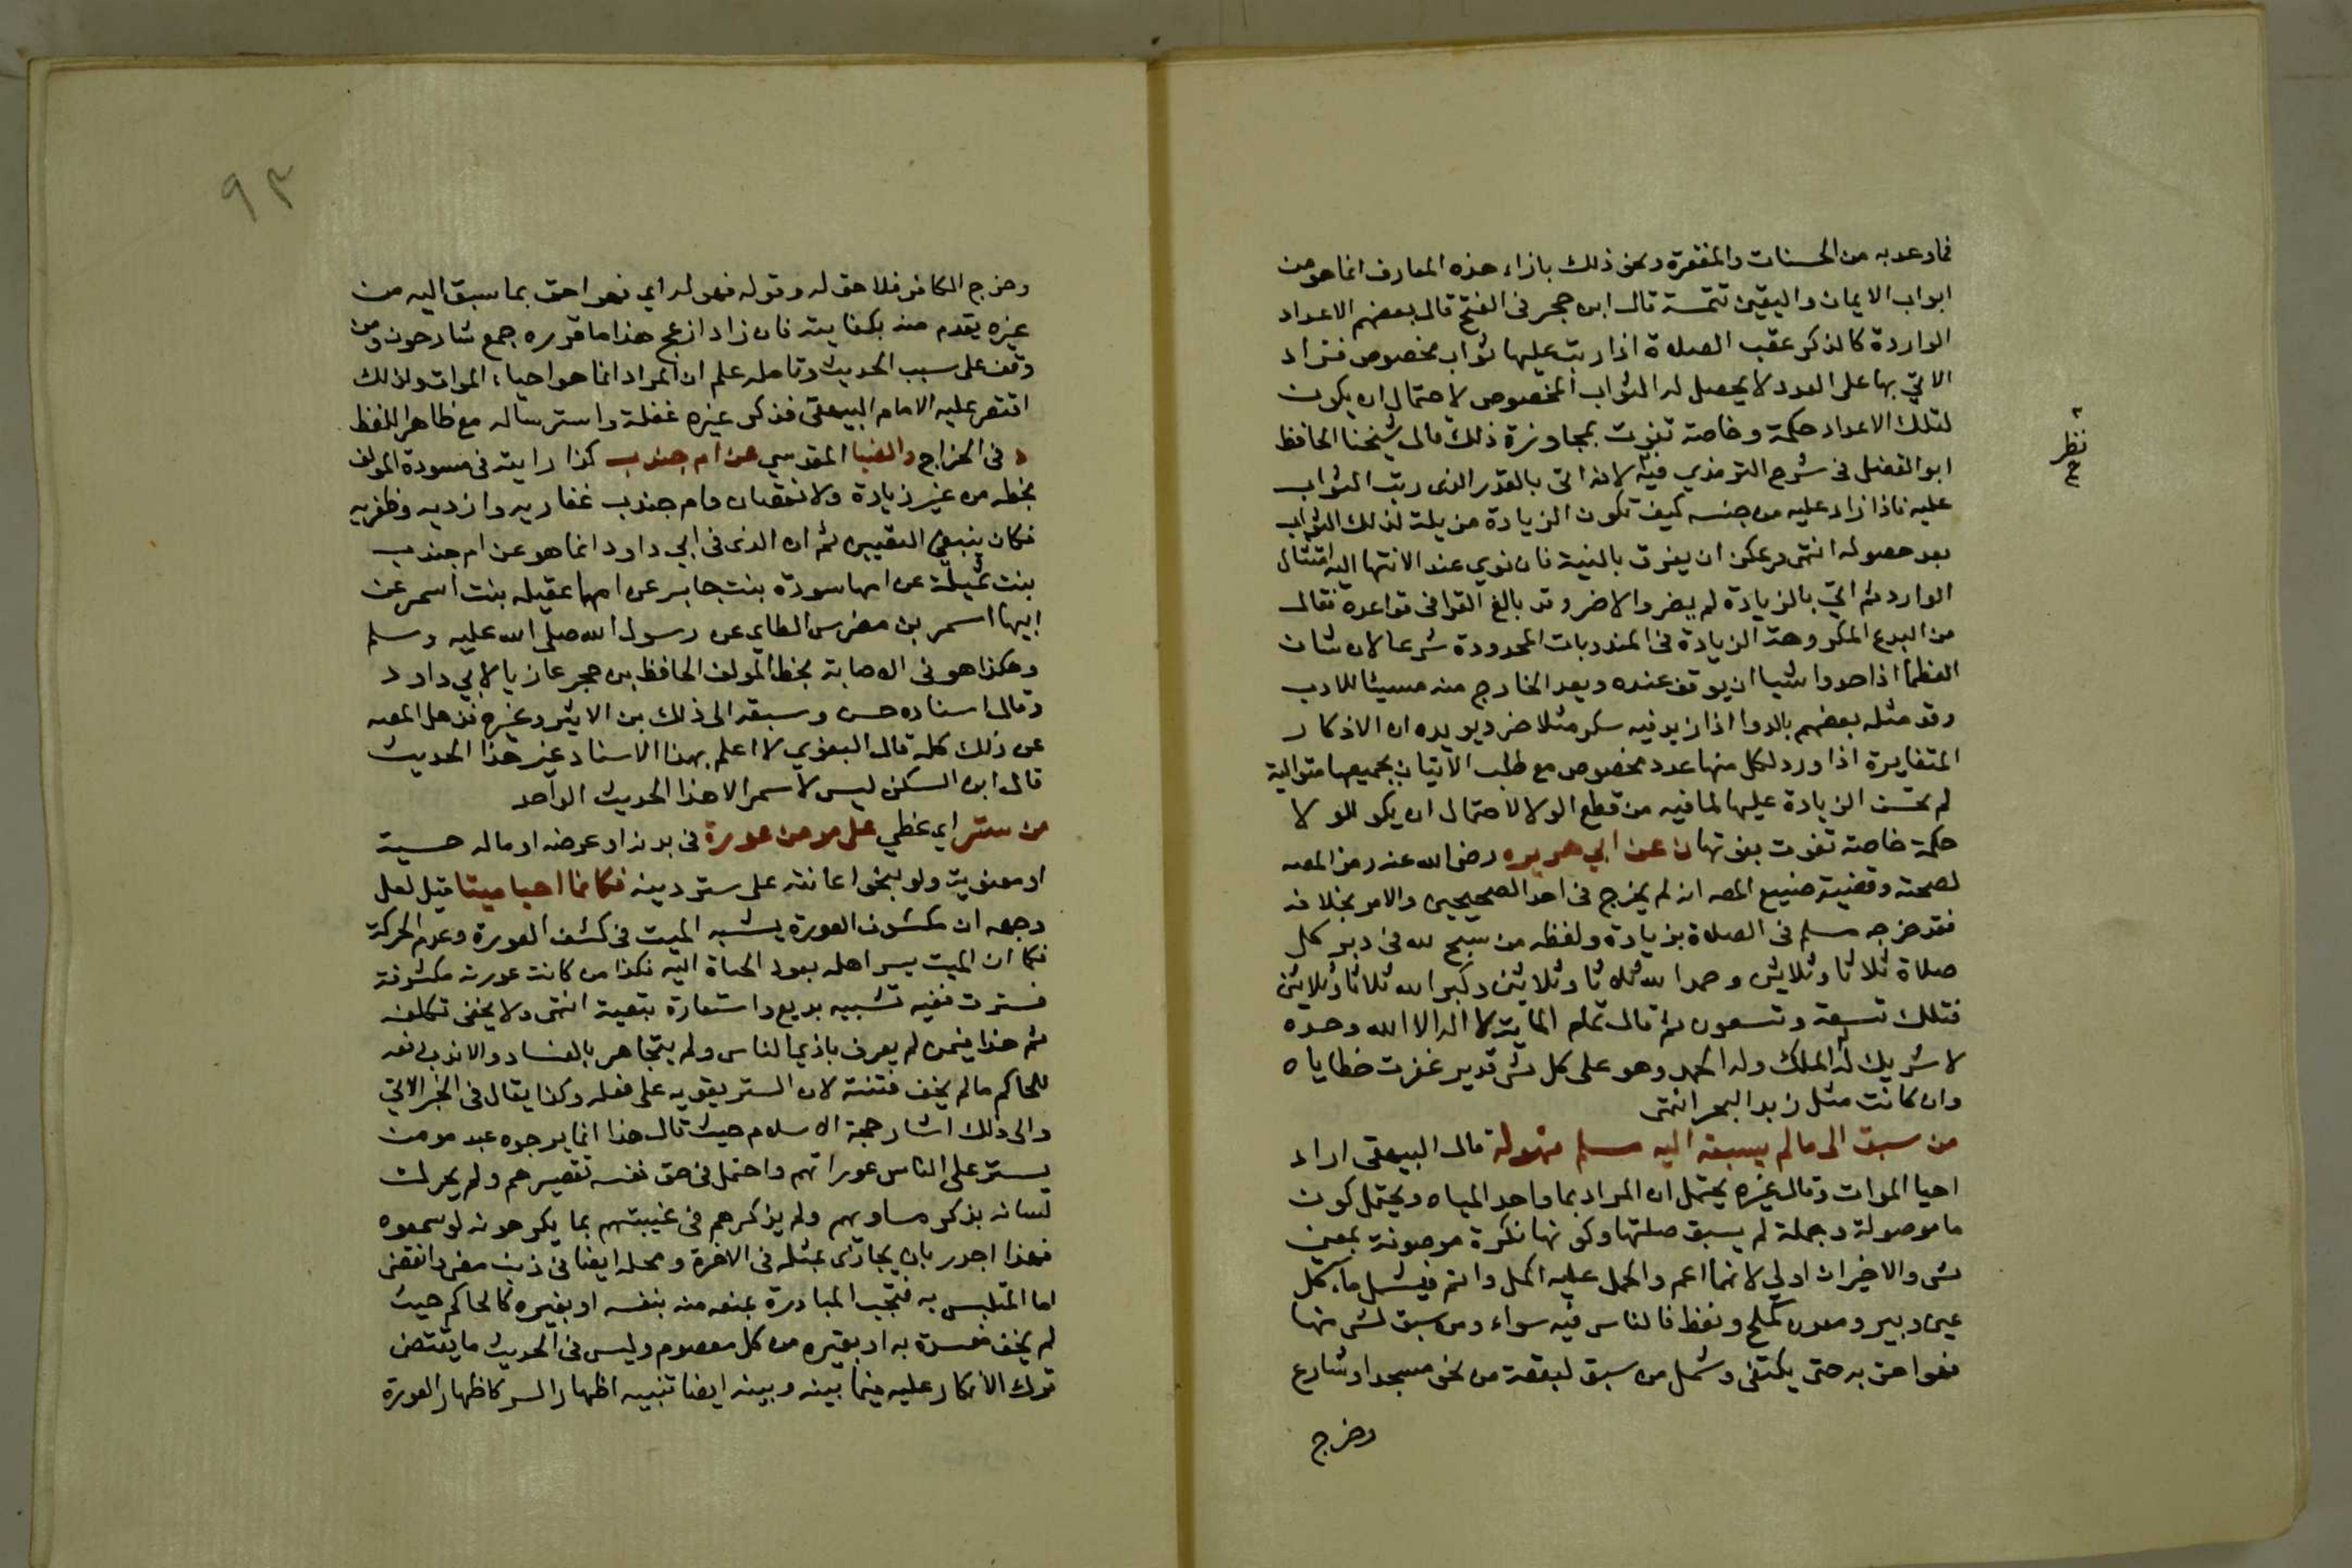 فما وعد به من الحسنات والمغفرة ونحو ذلك بازاء هذه المعارف انما هو من
ابواب الايمان واليقين تتمة قال ابن حجر في الفتح قال بعضهم الاعداد
الواردة كالذكر عقب الصلاة اذا رتب عليها ثواب مخصوص فزاد
الاتي بها على العدد لا يحصل له الثواب المخصوص لاحتمال ان يكون
لتلك الاعداد حكمة وخاصة تفوت بمجاوزة ذلك قال شيخنا الحافظ
ابو الفضل في شرح الترمذي فيه لانه اتى بالقدر الذي رتب الثواب
نظر
عليه فاذا زاد عليه من جنسه كيف تكون الزيادة مزيلة لذلك الثواب
بعد حصوله انتهى ويمكن ان يفرق بالنية فان نوي عند الانتها اليه امتثال
الوارد ثم اتي بالزيادة لم يضر والا ضر وقد بالغ القرافي في قواعده فقال
من البدع المكروهة الزيادة في المندوبات المحدودة شرعا لان شان
العظما اذا حدوا شيا ان يوقف عنده ويعد الخارج منه مسيئا للادب
وقد مثله بعضهم بالدوا اذا زيد فيه سكر مثلا ضر ويويده ان الاذكار
المتغايرة اذا ورد لكل منها عدد مخصوص مع طلب الاتيان بجميعها متوالية
لم تحسن الزيادة عليها لما فيه من قطع الولا لاحتمال ان يكو للولا
حكمة خاصة تفوت بفوتها ن عن ابي هريره رضى الله عنه رمز المصه
لصحته وقضية صنيع المصه انه لم يخرج في احد الصحيحين والامر بخلافه
فقد خرجه مسلم في الصلاة بزيادة ولفظه من سبح لله في دبر كل
صلاة ثلاثا وثلاثين وحمد الله ثلاثا وثلاثين وكبر الله ثلاثا وثلاثين
فتلك تسعة وتسعون ثم قال تمام الماية لا اله الا الله وحده
لا شريك له الملك وله الحمد وهو على كل شى قدير غفرت خطاياه
وان كانت مثل زبد البحر انتهى
من سبق الى ما لم يسبقه اليه مسلم فهو له قال البيهقى اراد
احيا الموات وقال غيره يحتمل ان المراد بما واحد المياه ويحتمل كون
ما موصولة وجملة لم يسبق صلتها وكونها نكرة موصوفة بمعنى
شى والاخيران اولي لانهما اعم والحمل عليه اكمل واتم فيشمل ما كل
عين وبير ومعدن كملح ونفط فالناس فيه سواء ومن سبق لشى منها
فهو احق به حتى يكتفى وشمل من سبق لبقعة من نحو مسجد او شارع
وخرج
٩٣
وخرج الكافر فلا حق له وقوله فهو له اي فهو احق بما سبق اليه من
غيره يقدم منه بكفايته فان زاد ازعج هذا ما قرره جمع شارحون ومن
وقف على سبب الحديث وتامله علم ان المراد انما هو احياء الموات ولذلك
اقتصر عليه الامام البيهقى فذكر غيره غفلة واسترساله مع ظاهر اللفظ
د في الخراج والضيا المقدسي عن ام جندب كذا رايته في مسودة المولف
بخطه من غير زيادة ولا نقصان وام جندب غفاريه وازديه وظفريه
فكان ينبغي التقييد ثم ان الذى في ابي داود انما هو عن ام جندب
بنت ثميلة عن امها سودة بنت جابر عن امها عقيله بنت اسمر عن
ابيها اسمر بن مضرس الطاي عن رسول الله صلى الله عليه وسلم
وهكذا هو في الاصابة بخط المولف الحافظ بن حجر عازيا لابي داود
وقال اسناده حسن وسبقه الى ذلك بن الاثير وغيره فذهل المصه
عن ذلك كله قال البغوي لا اعلم بهذا الاسناد غير هذا الحديث
قال ابن السكن ليس لاسمر الا هذا الحديث الواحد
من ستر اي غطي على مومن عورة في بدنه او عرضه او ماله حسية
او معنوية ولو بنحو اعانته على ستر دينه فكانما احيا ميتا قيل لعل
وجهه ان مكشوف العورة يشبه الميت في كشف العورة وعدم الحركة
فكما ان الميت يسر اهله بعود الحياة اليه فكذا من كانت عورته مكشوفة
فسترت ففيه تشبيه بديع واستعارة تبعية انتهى ولا يخفى تكلفه
ثم هذا فيمن لم يعرف باذي الناس ولم يتجاهر بالفساد والا ندب رفعه
للحاكم ما لم يخف فتنة لان الستر يقويه على فعله وكذا يقال في الخبر الاتي
والى ذلك اشار حجة الاسلام حيث قال هذا انما يرجوه عبد مومن
يستر على الناس عوراتهم واحتمل في حق نفسه تقصيرهم ولم يحرك
لسانه بذكر مساويهم ولم يذكرهم في غيبتهم بما يكرهونه لو سمعوه
فهذا اجدر بان يجازى بمثله في الاخرة ومحله ايضا في ذنب مضى وانقضى
اما المتلبس به فتجب المبادرة بمنعه منه بنفسه او بغيره كالحاكم حيث
لم يخف مفسدة به او بغيره من كل معصوم وليس في الحديث ما يقتضى
ترك الانكار عليه فيما بينه وبينه ايضا تنبيه اظهار السر كاظهار العورة